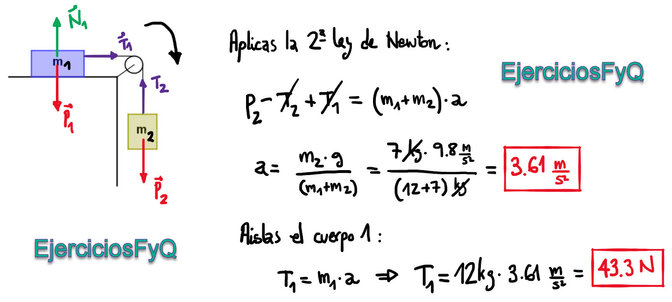 N₁
T₁
m₁
T₂
P₁
m₂
P₂
EjerciciosFyQ
Aplicas la 2ª ley de Newton:
EjerciciosFyQ
P₂ - T₂ + T₁ = (m₁+m₂)·a
a = m₂·g / (m₁+m₂) = 7 kg · 9.8 m/s² / (12+7) kg = 3.61 m/s²
Aislas el cuerpo 1:
T₁ = m₁·a ⇒ T₁ = 12kg · 3.61 m/s² = 43.3 N